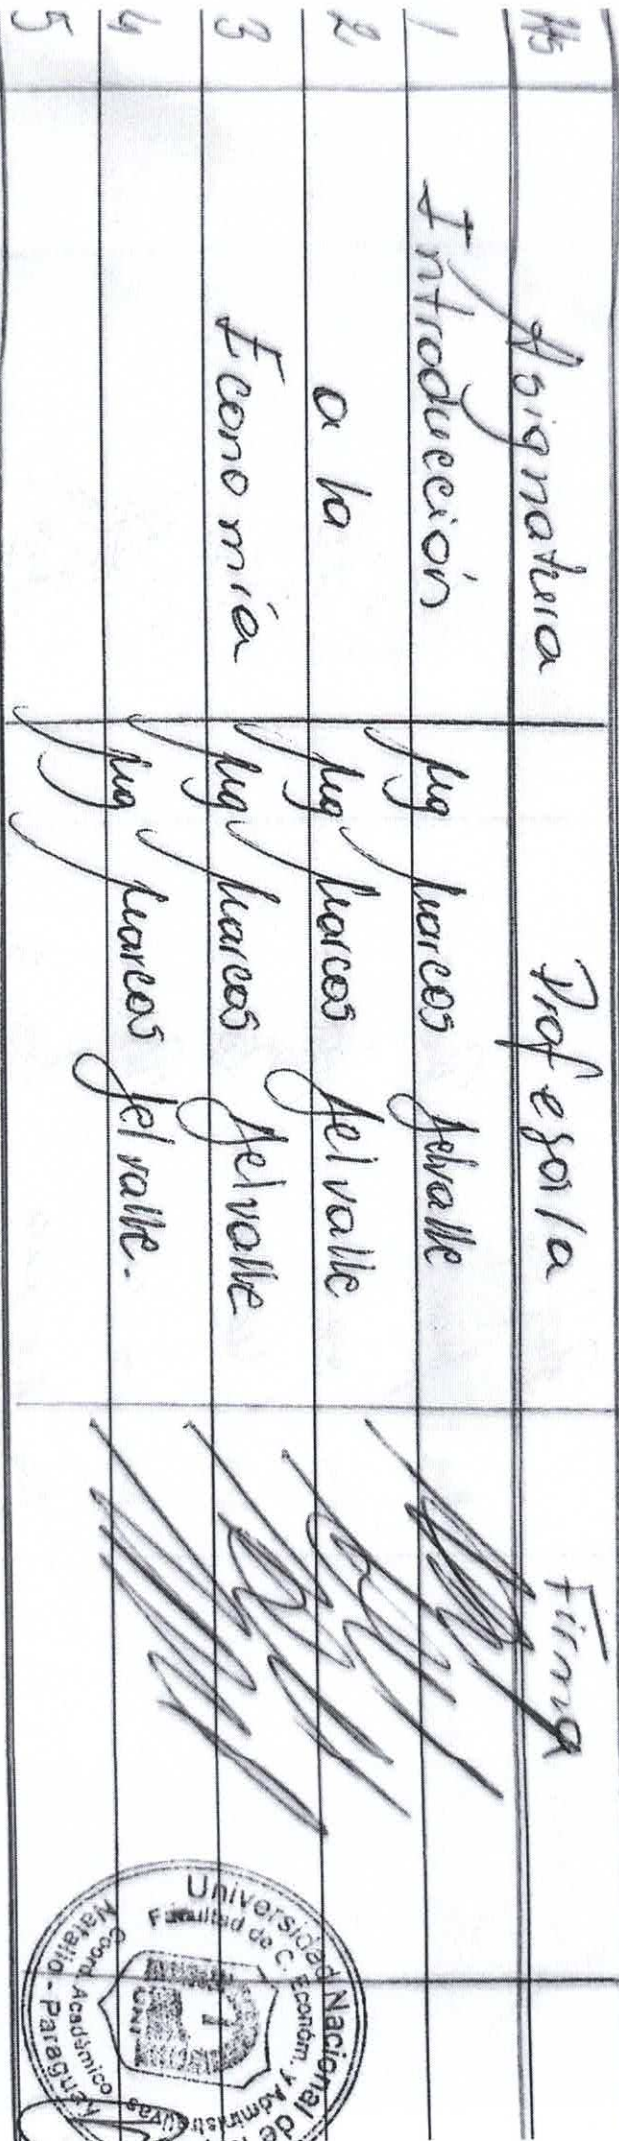 Hs Asignatura Profesor/a Firma
1 Introducción Mg Marcos Delvalle
2 a la Mg Marcos Delvalle
3 Economía Mg Marcos Delvalle
4 Mg Marcos Delvalle.
5
Universidad Nacional de
Facultad de C. Económ. y Administrativas
Coord. Académico
Natalio - Paraguay
UNI